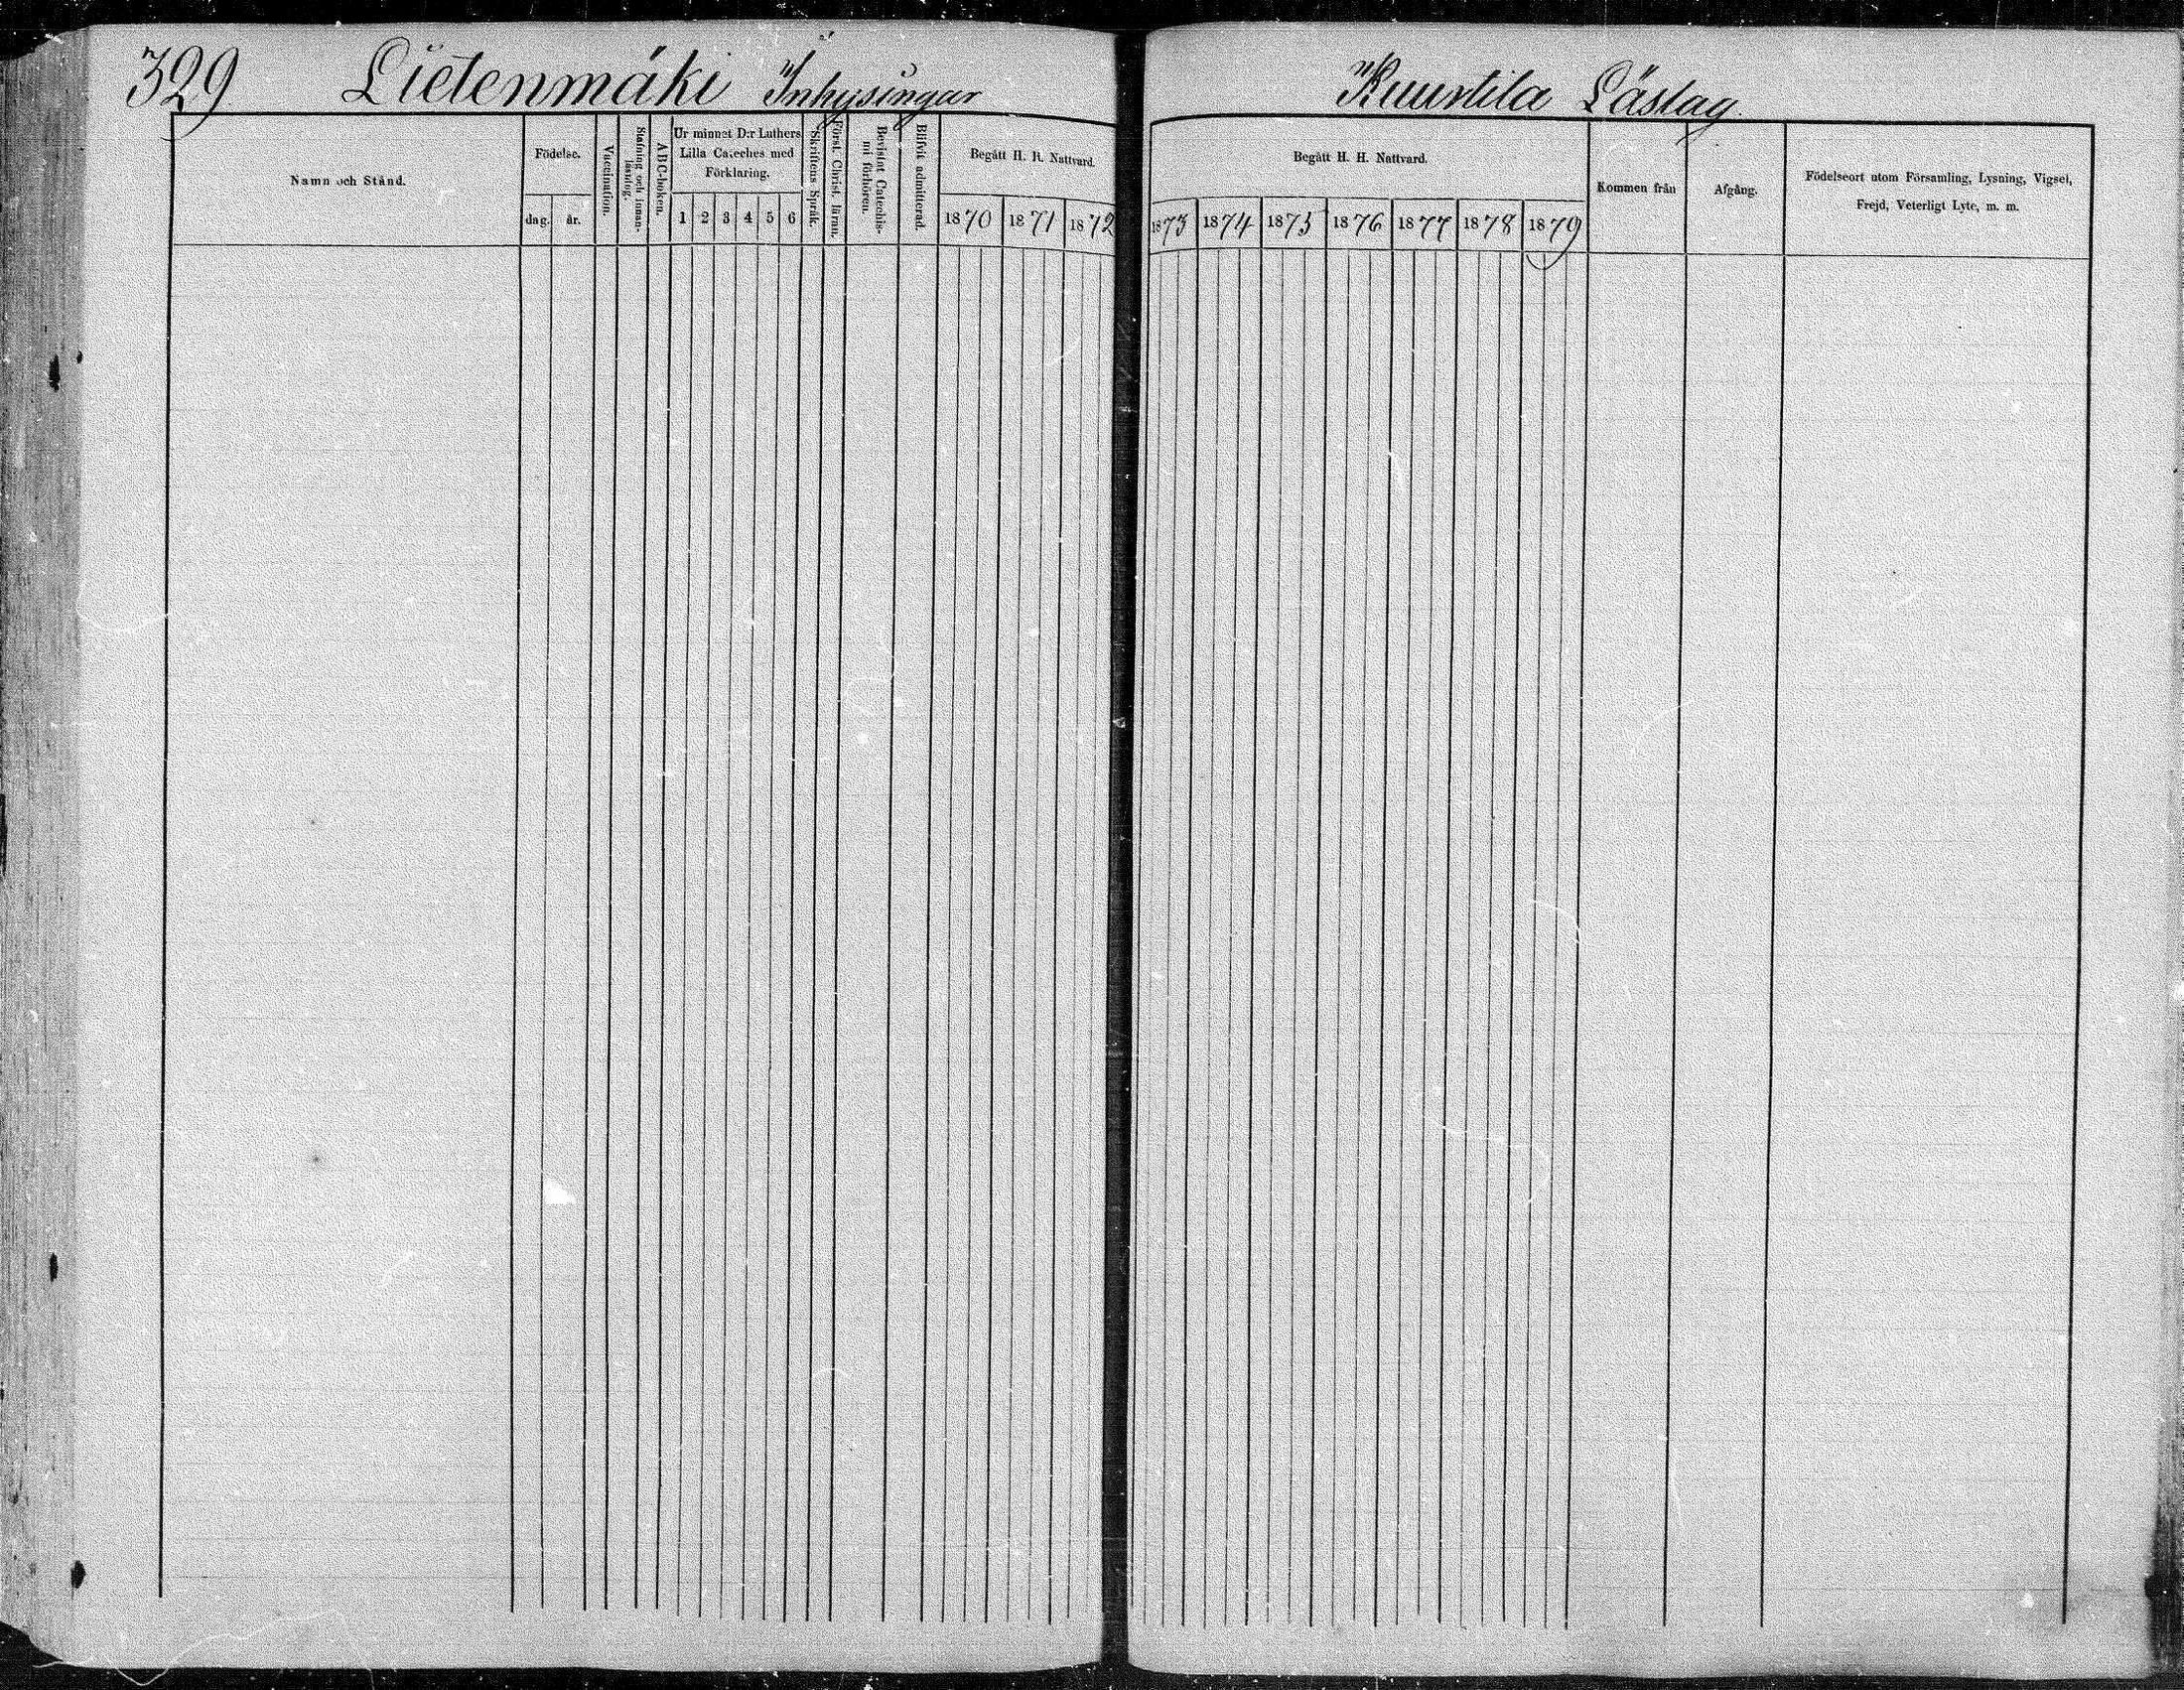 329 Lietenmäki Inhysingar
Namn och Stånd.
Födelse.
dag. år.
Vaccination.
Stafning och innan-
läsning.
ABC-boken.
Ur minnet D:r Luthers
Lilla Cateches med
Förklaring.
1 2 3 4 5 6
Skriftens Språk.
Först. Christ. läran.
Bevistat Catechis-
mi förhören.
Blifvit admitterad.
Begått H. H. Nattvard.
1870 1871 1872
Kuurtila Läslag.
Begått H. H. Nattvard.
1873 1874 1875 1876 1877 1878 1879
Kommen från
Afgång.
Födelseort utom Församling, Lysning, Vigsel,
Frejd, Veterligt Lyte, m. m.